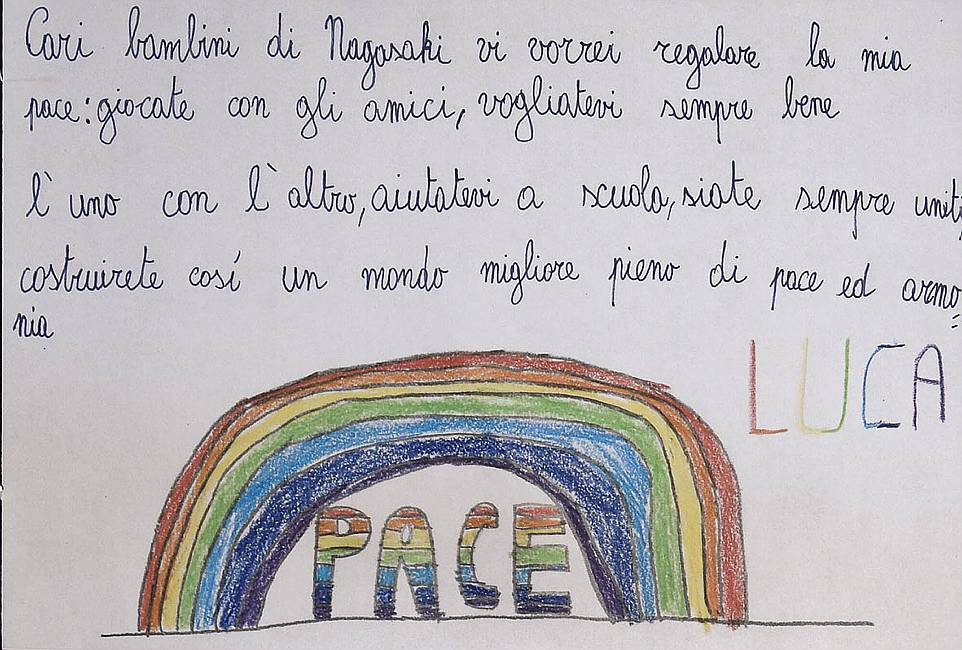 Cari bambini di Nagasaki vi vorrei regalare la mia
pace: giocate con gli amici, vogliatevi sempre bene
l'uno con l'altro, aiutatevi a scuola, siate sempre uniti,
costruirete cosí un mondo migliore pieno di pace ed armo=
nia
LUCA
PACE